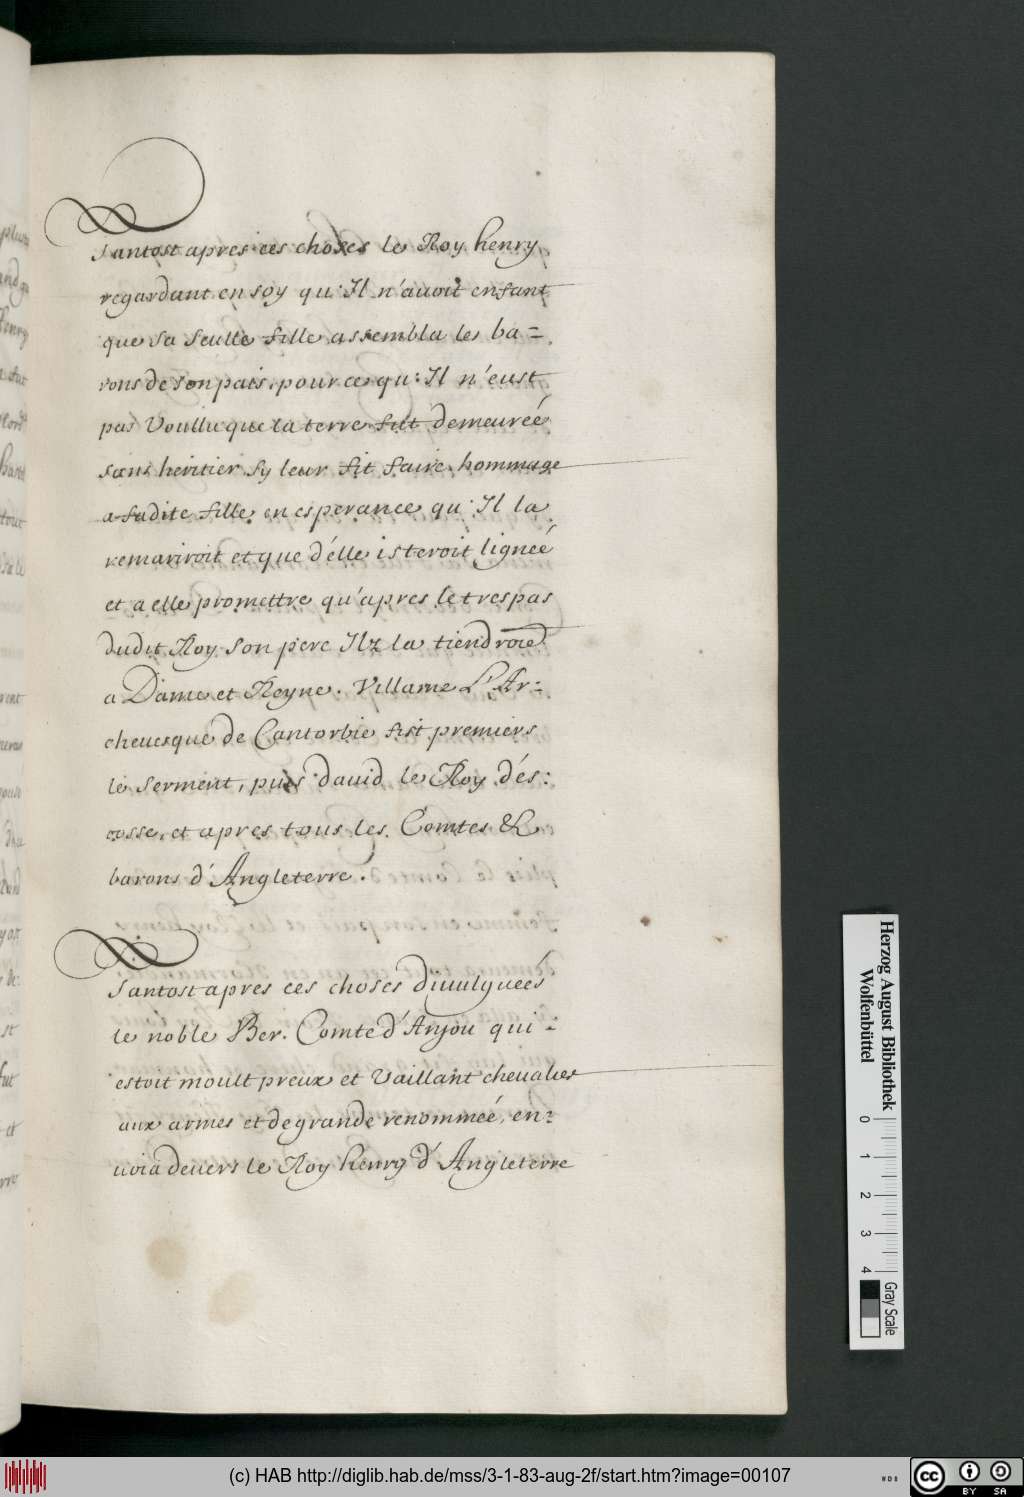 Tantost apres ces choses le Roy henry
regardant en soy qu'Il n'auoit enfant
que sa seulle fille assembla les ba=
rons de son pais, pour ce qu'Il n'eust
pas Voullu que la terre fut demeureé
sans heritier sy leur fit faire hommage
a sadite fille en esperance qu'Il la
remariroit et que d'elle isteroit ligneé
et a elle promettre qu'apres le trespas
dudit Roy son pere Ilz la tiendroie
a Dame et Reyne. Villame L'Ar=
cheuesque de Cantorbie fist premiers
le serment, puis dauid le Roy d'és=
cosse, et apres tous les Comtes &
barons d'Angleterre.
Tantost apres ces choses diuulgueés
le noble Ber. Comte d'Anjou qui
estoit moult preux et Vaillant cheualier
aux armes et de grande renommeé, en=
uoia deuers le Roy henry d'Angleterre
Herzog August Bibliothek
Wolfenbüttel
0 1 2 3 4
Gray Scale
(c) HAB http://diglib.hab.de/mss/3-1-83-aug-2f/start.htm?image=00107
cc BY SA